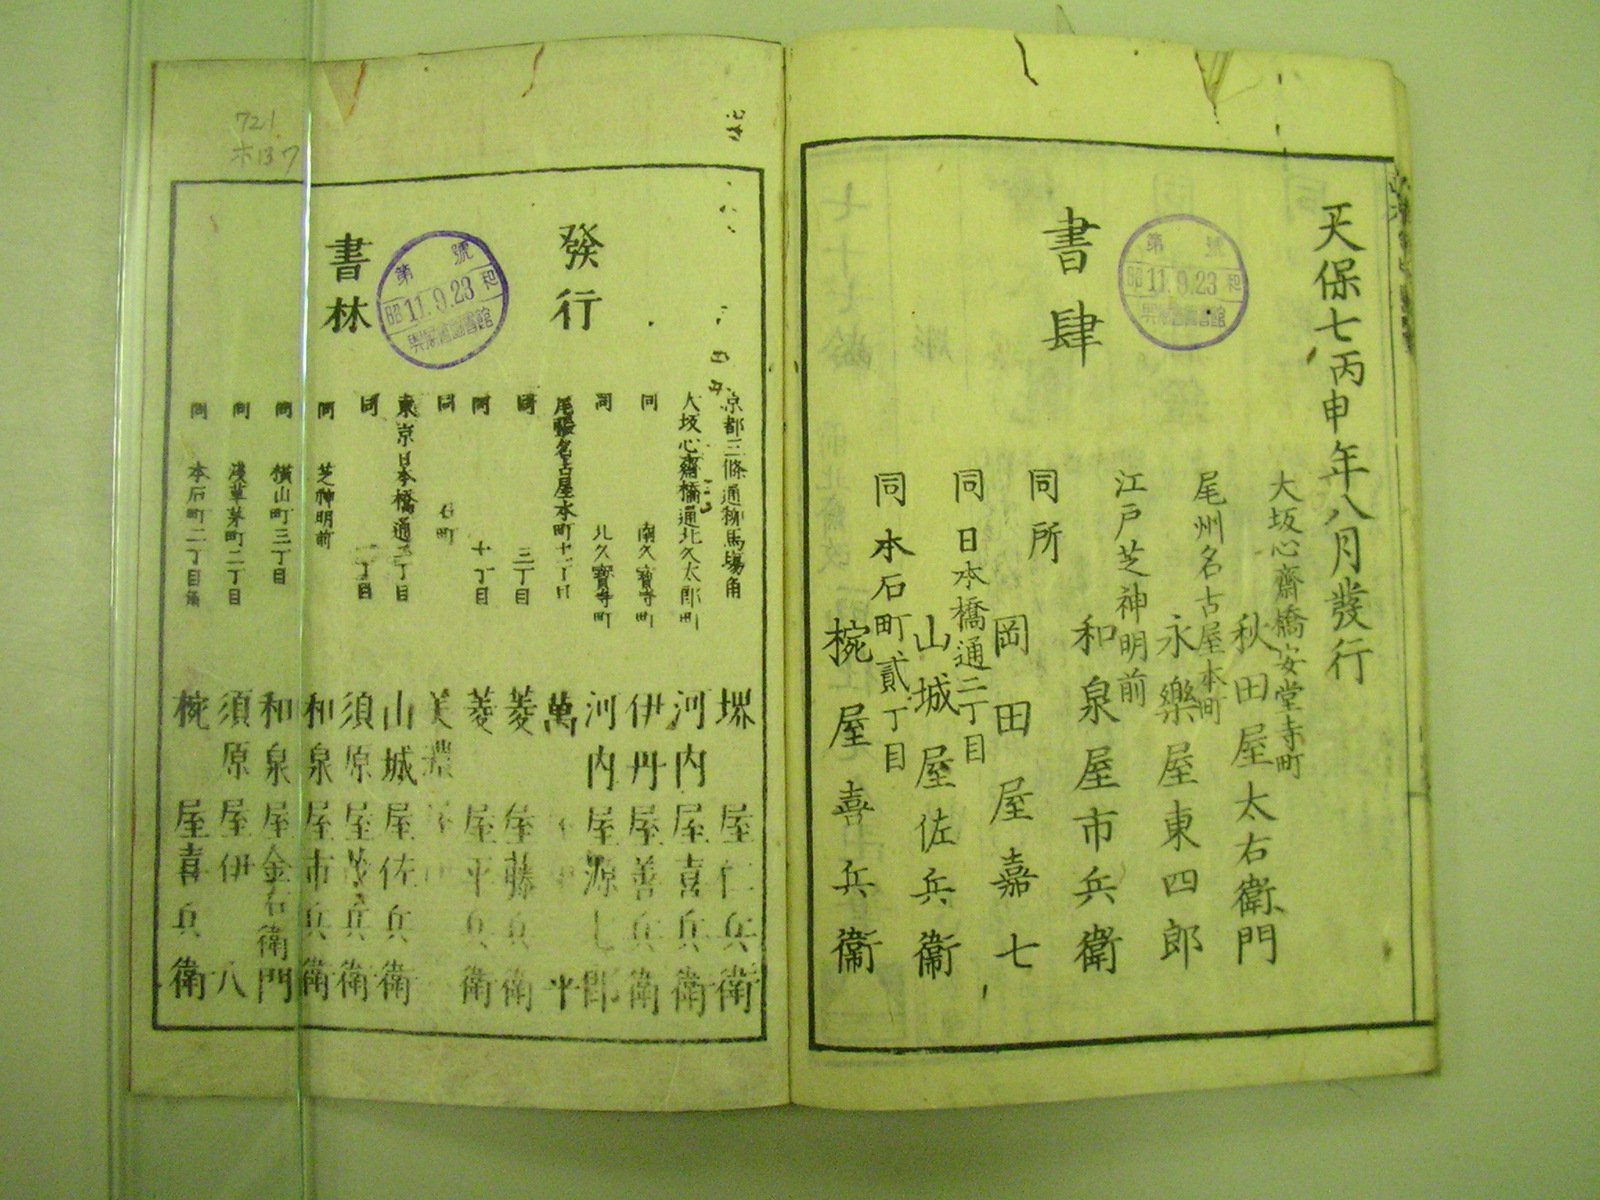 天保七丙申年八月發行
書肆
大坂心齋橋安堂寺町
秋田屋太右衛門
尾州名古屋本町
永樂屋東四郎
江戸芝神明前
和泉屋市兵衛
同所
岡田屋嘉七
同日本橋通二丁目
山城屋佐兵衛
同本石町貳丁目
椀屋喜兵衛
第號
昭和
11.9.23
721
ホ13 7
發行
書林
第號
昭和
11.9.23
京都三條通柳馬場角
堺屋仁兵衛
大坂心齋橋通北久太郎町
河内屋喜兵衛
同 南久寶寺町
伊丹屋善兵衛
同 北久寶寺町
河内屋源七郎
尾張名古屋本町十一丁目
萬 平
同 三丁目
菱屋藤兵衛
同 十丁目
菱屋平兵衛
同 町
美濃
東京日本橋通二丁目
山城屋佐兵衛
同 丁目
須原屋茂兵衛
同 芝神明前
和泉屋市兵衛
同 横山町三丁目
和泉屋金右衛門
同 淺草茅町二丁目
須原屋伊八
同 本石町二丁目角
椀屋喜兵衛